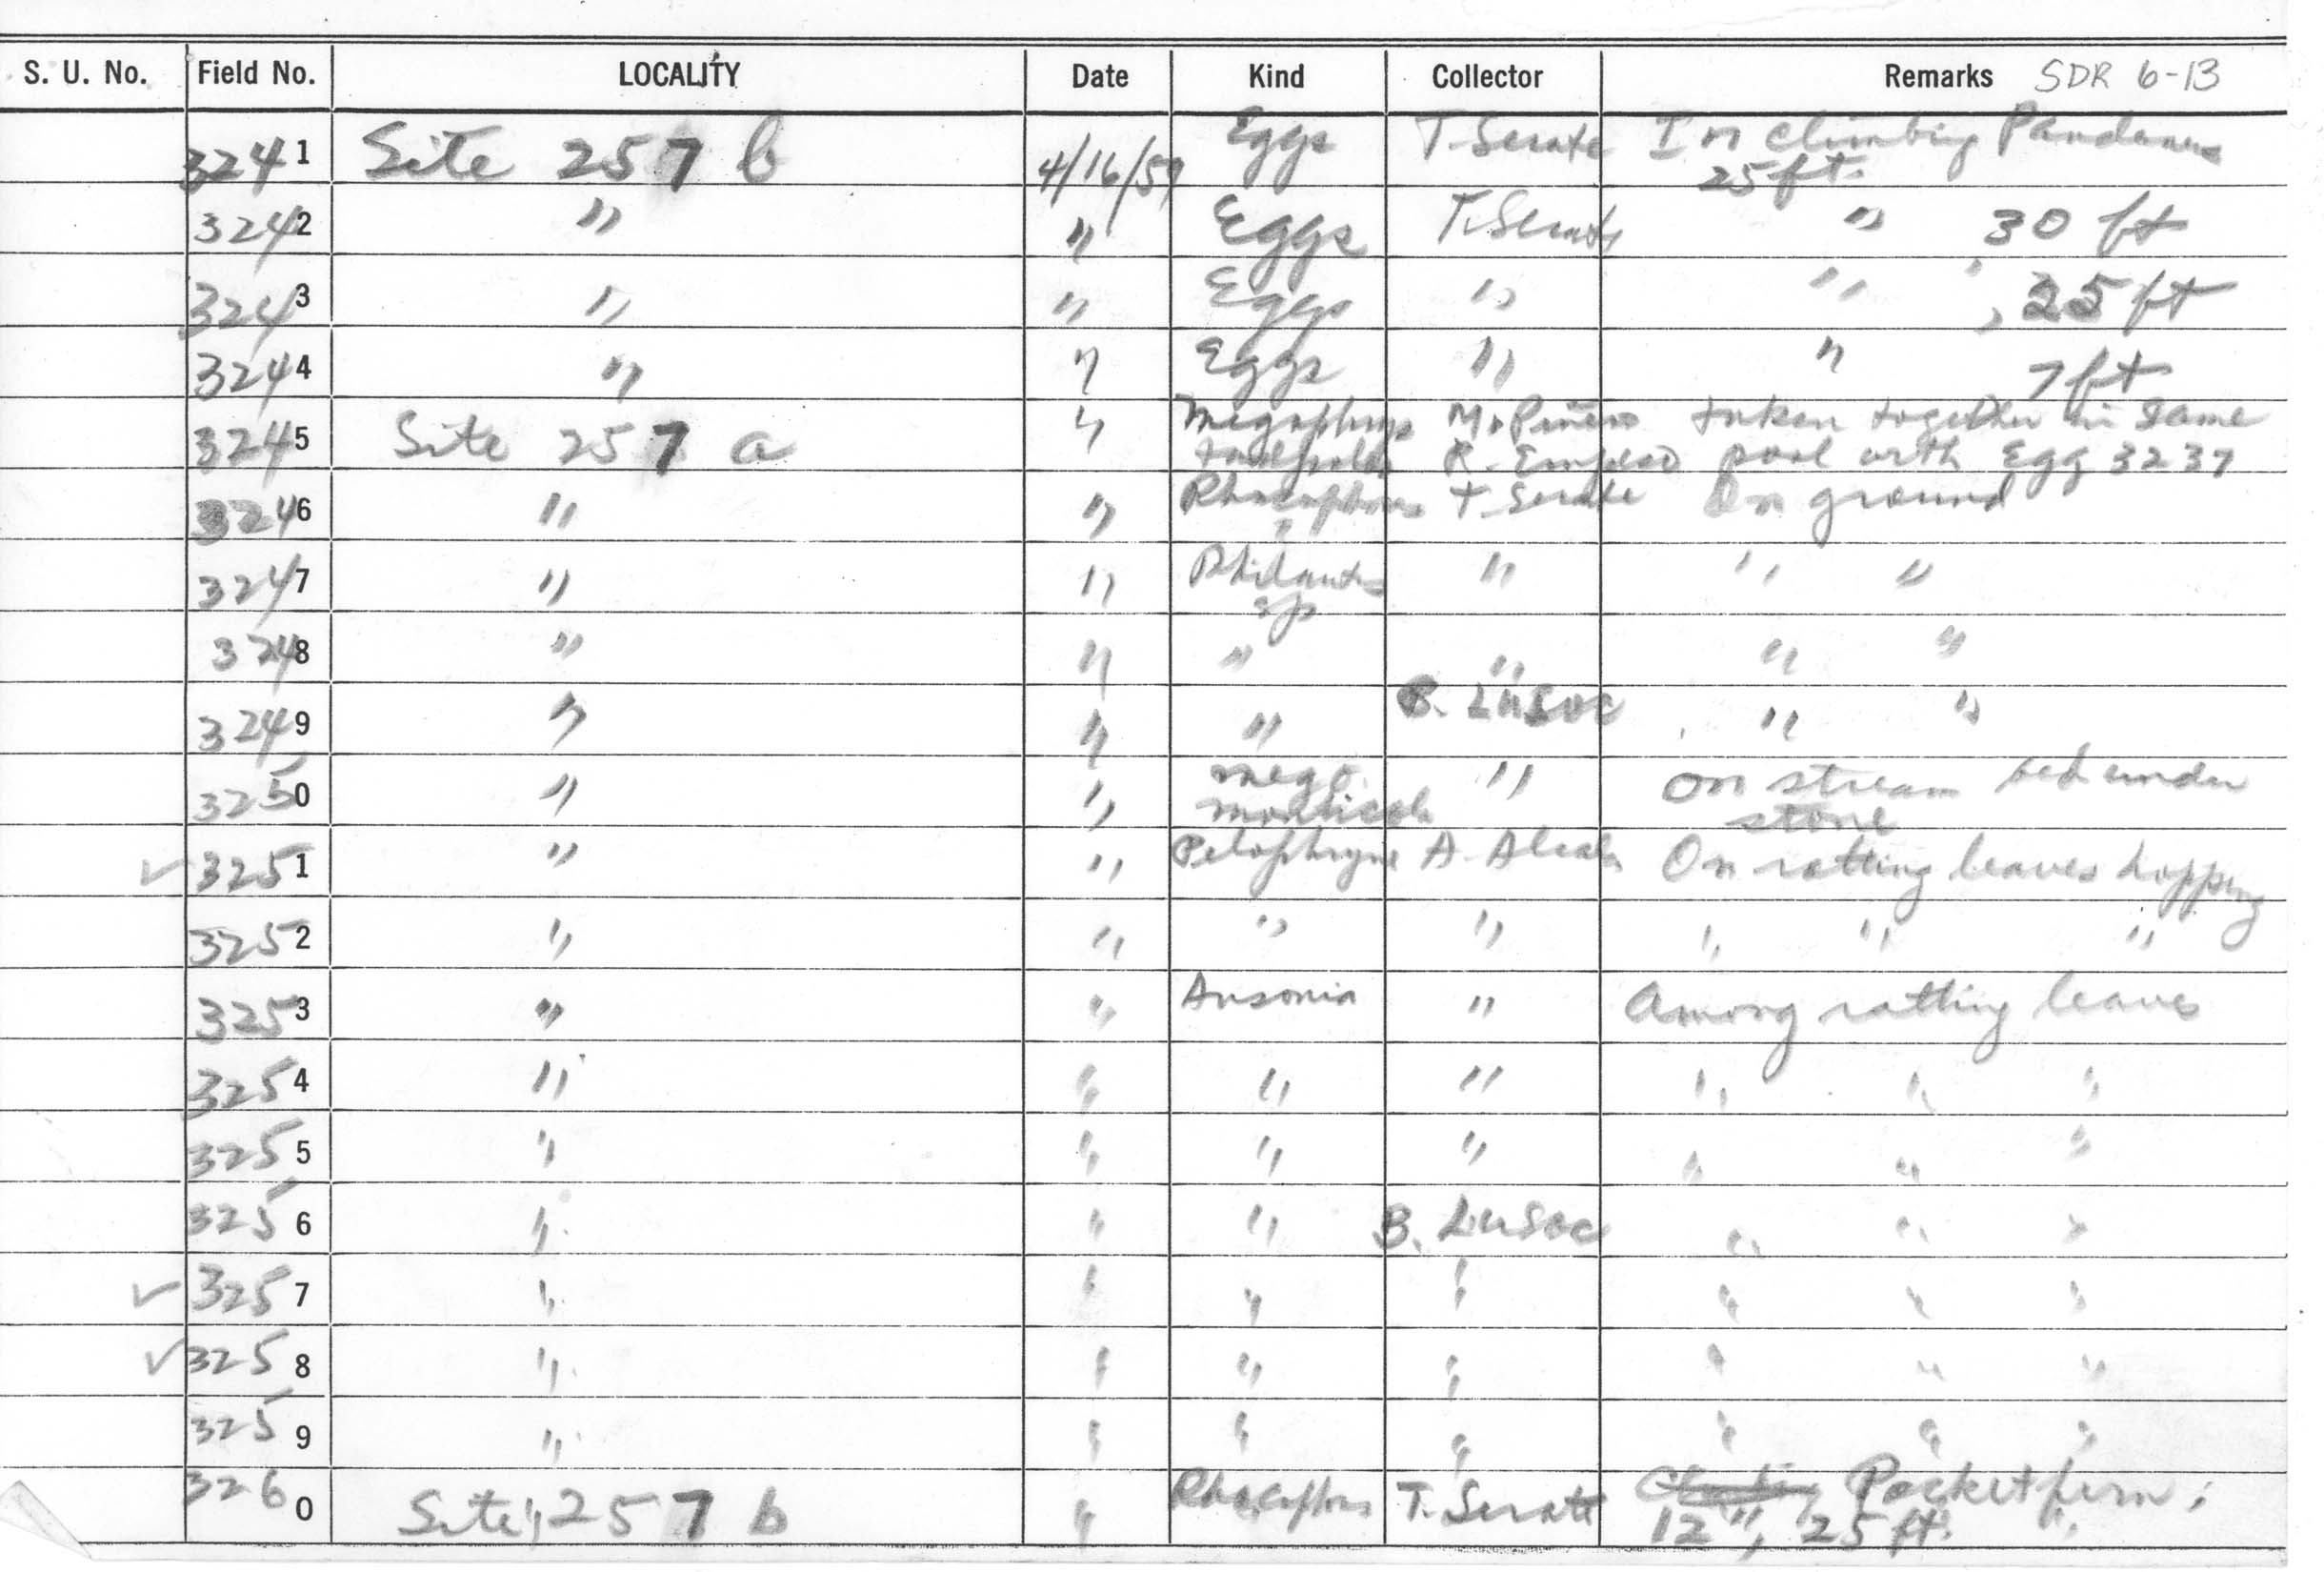 S. U. No. Field No. LOCALITY Date Kind Collector Remarks SDR 6-13
3241 Site 257 b 4/16/59 Eggs T. Serate In climbing Pandanus
25 ft.
3242 " " Eggs T. Serate " 30 ft
3243 " " Eggs " " , 25 ft
3244 " " Eggs " " 7 ft
3245 Site 257 a " Megophrys M. Piñero taken together in same
tadpoles R. Empeso pool with Egg 3237
3246 " " Rhacophorus T. Serate On ground
3247 " " Philautus " " "
sp
3248 " " " " " "
3249 " " " B. Lusoc " "
3250 " " Mego. " On stream bed under
monticola stone
✓ 3251 " " Pelophryne A. Alcala On rotting leaves hopping
3252 " " " " " " "
3253 " " Ansonia " Among rotting leaves
3254 " " " " " " "
3255 " " " " " " "
3256 " " " B. Lusoc " " "
✓ 3257 " " " " " " "
✓ 3258 " " " " " " "
3259 " " " " " " "
3260 Site 257 b " Rhacophorus T. Serate Pocket fern;
12", 25 ft.